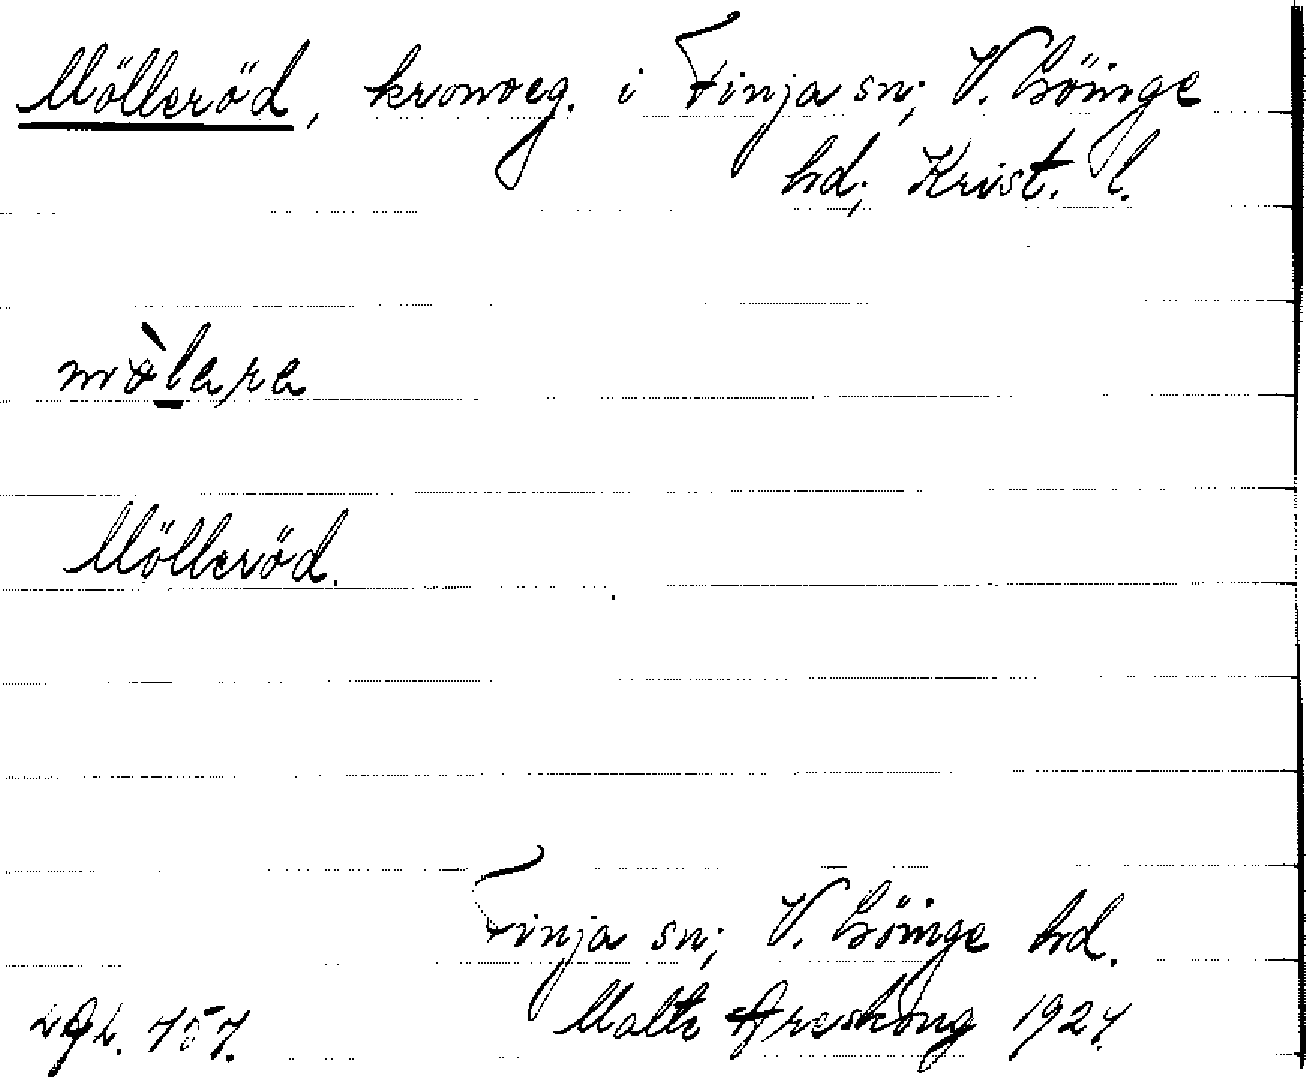 Mölleröd, kronoeg. i Finja sn; V. Göinge
hd; Krist. l.
Mölleröd.
Finja sn; V. Göinge hd.
Malte Areskoug 1927.